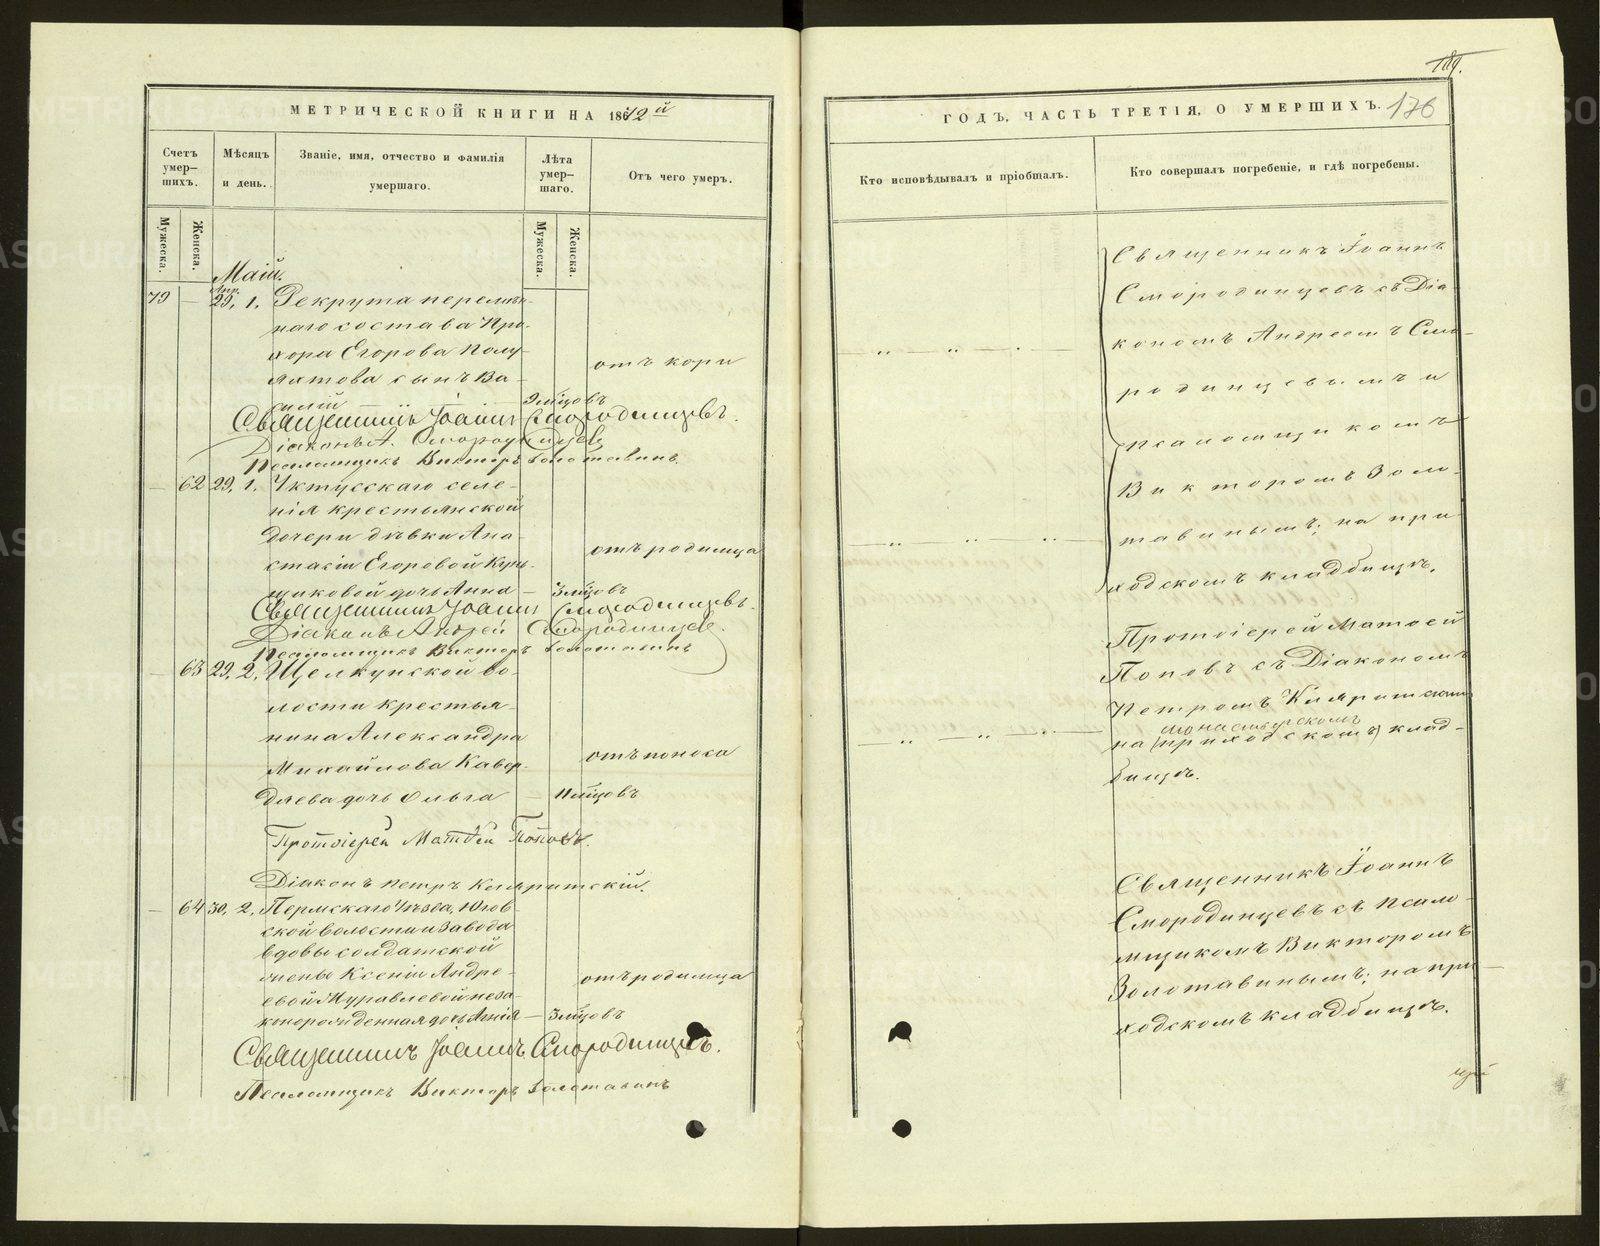 МЕТРИЧЕСКОЙ КНИГИ НА 1872й
Счетъ умер-шихъ.
Мѣсяцъ и день.
Званіе, имя, отчество и фамилія умершаго.
Лѣта умер-шаго.
Отъ чего умеръ.
Мужеска.
Женска.
Мужеска.
Женска.
Маій.
Апр.
79 — 29. 1. Рекрута перемѣн-
наго состава Про-
хора Егорова Полу-
яхтова сынъ Ва-
силій — 9 мѣсцовъ
отъ кори
Священникъ Іоаннъ Смородинцевъ.
Діаконъ А. Смородинцевъ
Псаломщикъ Викторъ Золотавинъ.
— 62 29. 1. Уктусскаго селе-
нія крестьянской
дочери дѣвки Ана-
стасіи Егоровой
щиковой дочь Анна — 3 мѣсцовъ
отъ родимца
Священникъ Іоаннъ Смородинцевъ.
Діаконъ Андрей Смородинцев.
Псаломщикъ Викторъ Золотавинъ
— 63 29. 2. Щелкунской во-
лости крестья-
нина Александра
Михайлова Кавер-
дяева дочь Ольга — 11 мѣсцовъ
отъ поноса
Протоіерей Матѳей Поповъ.
Діаконъ Петръ Кипритскій.
— 64 30. 2. Пермскаго уѣзда, Югов-
ской волости и завода
вдовы солдатской
жены Ксеніи Андре-
евой Муравлевой неза-
коннорожденная дочь — 3 мѣсцовъ
отъ родимца
Священникъ Іоаннъ Смородинцевъ.
Псаломщикъ Викторъ Золотавинъ
189.
ГОДЪ, ЧАСТЬ ТРЕТІЯ, О УМЕРШИХЪ. 176
Кто исповѣдывалъ и пріобщалъ.
Кто совершалъ погребеніе, и гдѣ погребены.
Священникъ Іоаннъ
Смородинцевъ съ Діа-
кономъ Андреемъ Смо-
родинцевымъ и
псаломщикомъ
Викторомъ Золо-
тавинымъ; на при-
ходскомъ кладбищѣ.
Протоіерей Матѳей
Поповъ съ Діакономъ
Петромъ Кипритскимъ
монастырскомъ
на (приходскомъ) клад-
бищѣ.
Священникъ Іоаннъ
Смородинцевъ съ псало-
мщикомъ Викторомъ
Золотавинымъ; на при-
ходскомъ кладбищѣ.
METRIKI.GASO-URAL.RU